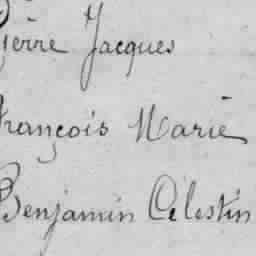 Pierre Jacques
François Marie
Benjamin Célestin